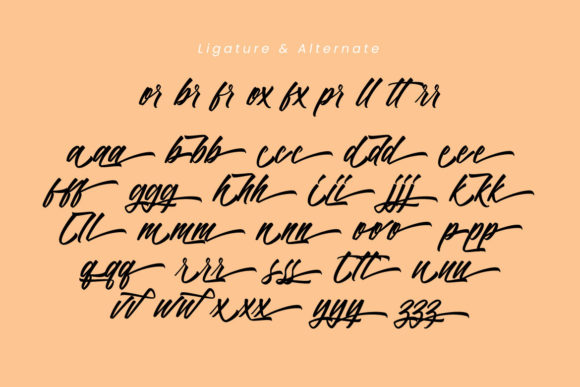 Ligature & Alternate
or br fr ox fx pr ll tt rr
aaa bbb ccc ddd eee
fff ggg hhh iii jjj kkk
lll mmm nnn ooo ppp
qqq rrr sss ttt uuu
vv ww xxx yyy zzz